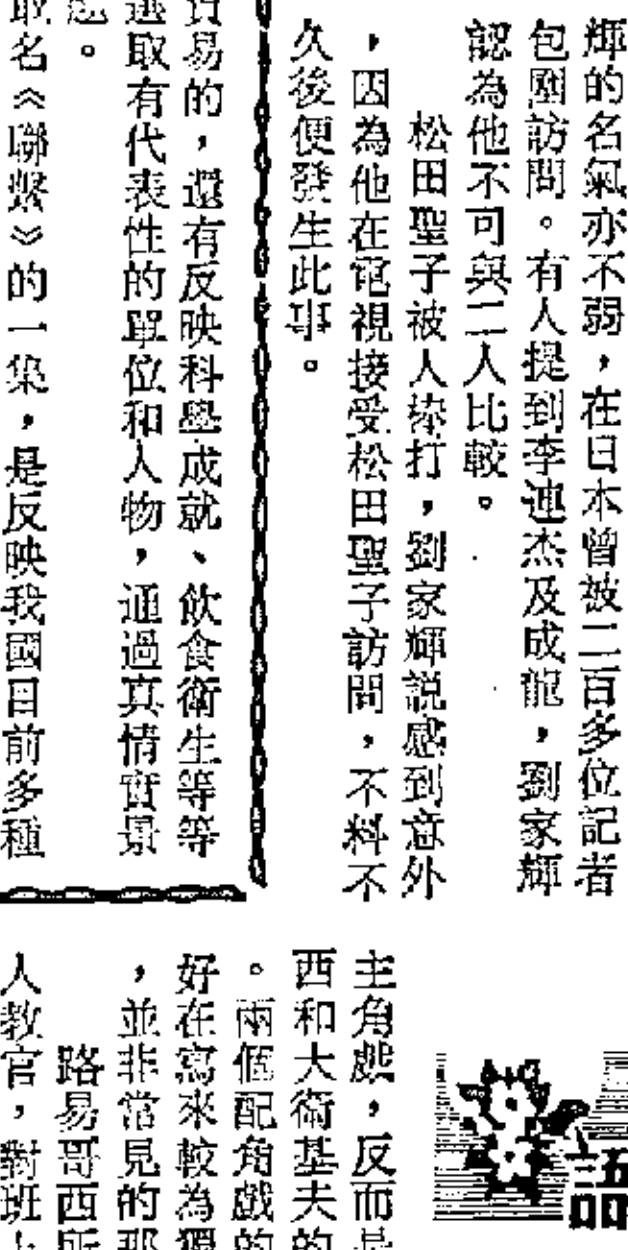 輝的名氣亦不弱，在日本曾被二百多位記者
包圍訪問。有人提到李連杰及成龍，劉家輝
認為他不可與二人比較。
松田聖子被人捧打，劉家輝説感到意外
，因為他在電視接受松田聖子訪問，不料不
久後便發生此事。
貿易的，還有反映科學成就、飲食衛生等等
選取有代表性的單位和人物，通過真情實景
。
取名《聯繫》的一集，是反映我國目前多種
語
主角戲，反而是
西和大衞基夫的
。兩個配角戲的
好在寫來較為獨
，並非常見的那
路易哥西所
人教官，對班上